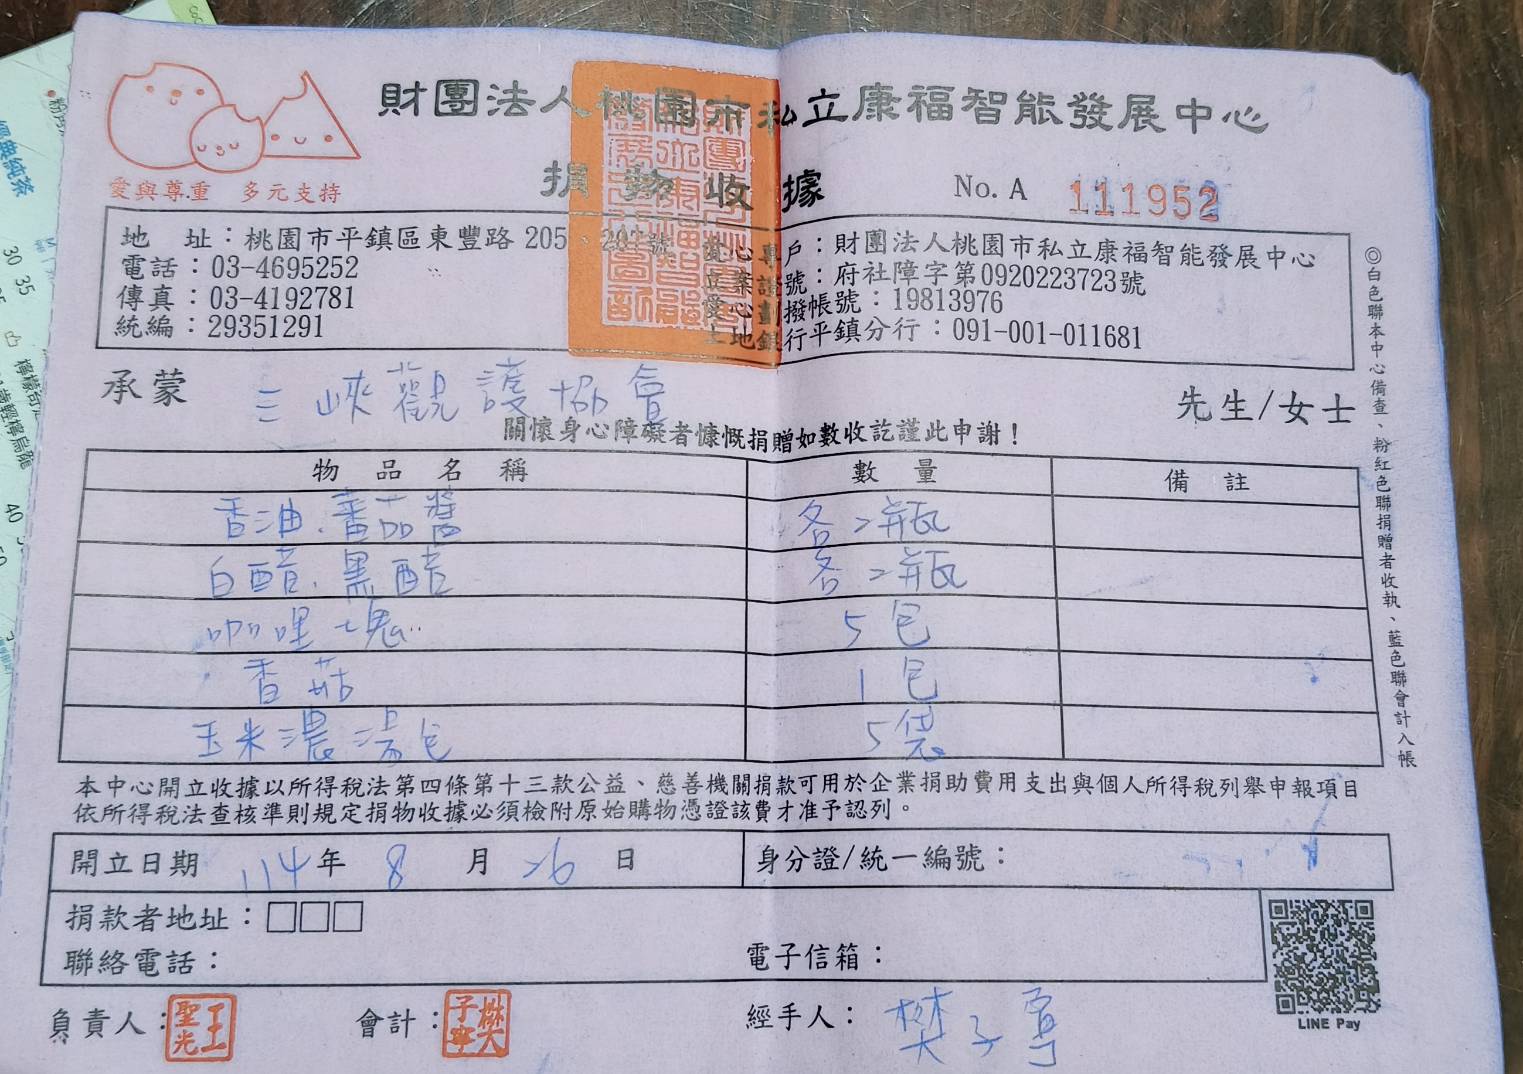 財團法人桃園市私立康福智能發展中心
捐物收據
No. A 111952
愛與尊重 多元支持
地 址：桃園市平鎮區東豐路 205、207號
電話：03-4695252
傳真：03-4192781
統編：29351291
愛心專戶：財團法人桃園市私立康福智能發展中心
立案證號：府社障字第0920223723號
愛心劃撥帳號：19813976
土地銀行平鎮分行：091-001-011681
承蒙 三峽觀護協會 先生/女士
關懷身心障礙者慷慨捐贈如數收訖謹此申謝！
物品名稱 數量 備註
香油、蕃茄醬 各2瓶
白醋、黑醋 各2瓶
咖哩塊 5包
香菇 1包
玉米濃湯包 5袋
本中心開立收據以所得稅法第四條第十三款公益、慈善機關捐款可用於企業捐助費用支出與個人所得稅列舉申報項目
依所得稅法查核準則規定捐物收據必須檢附原始購物憑證該費才准予認列。
開立日期 114年 8 月 26 日 身分證/統一編號：
捐款者地址：□□□
聯絡電話： 電子信箱：
負責人：王聖光 會計：樊子寧 經手人：樊子寧
LINE Pay
◎白色聯本中心備查、粉紅色聯捐贈者收執、藍色聯會計入帳
30 35
40